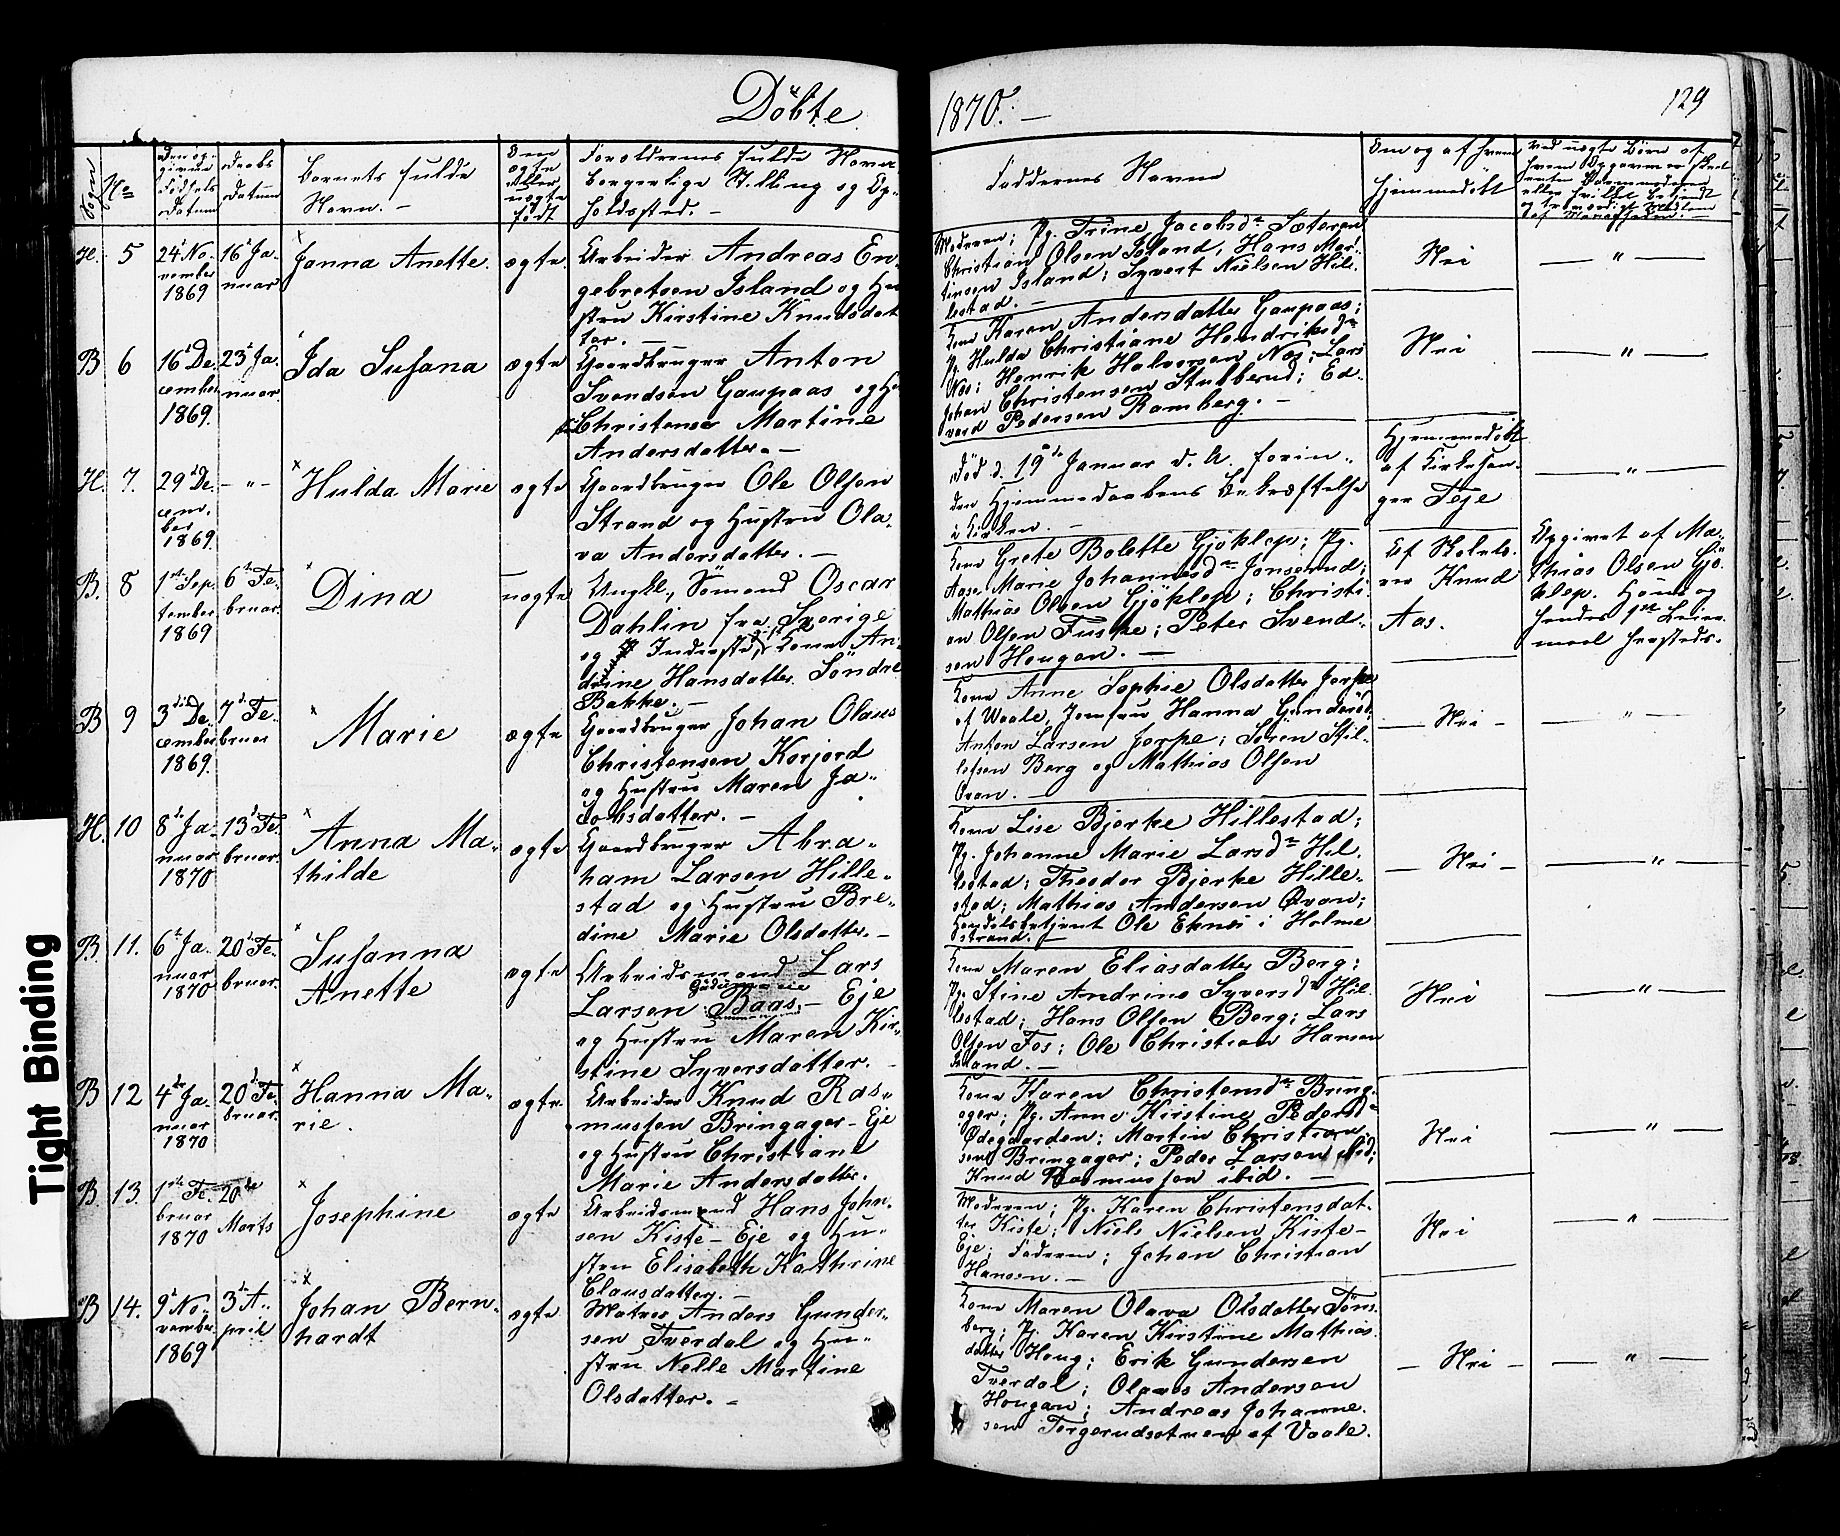 Döbte
1870. —
129
Tight Binding
Sogn
No
Den op-
givne
Födsels
Datum
Daabs
Datum
Barnets fulde
Navn. —
Om
ægte
eller
uægte
født
Forældrenes fulde Navne
borgerlige Stilling og Op-
holdssted. —
Faddernes Navne
Om og af hvem
hjemmedöbt
H. 5
24d No-
vember
1869
16d Ja-
nuar
Janna Anette.
ægte
Arbeider Andreas En-
gebretsen Island og Hu-
stru Kirstine Knudsdat-
ter. —
Moderen; Pg. Trine Jacobsdr Sæteren
Christian Olsen Island, Hans Mar-
tinsen Island; Syvert Nielsen Hil-
lestad. —
Nei
— " —
B 6
16d De-
cember
1869.
23d Ja-
nuar.
Ida Susana
ægte
Gaardbruger Anton
Svendsen Gaupaas og H
Christense Martine
Andersdatter. —
Kone Karen Andersdatter Gaupaas;
Pg. Hulda Christiane Hendriksdr
Nes; Henrik Halvorsen Nes; Lars
Johan Christensen Stubberud; Ed-
vard Pedersen Ramberg. —
Nei
— " —
H. 7.
29d De-
cem-
ber
1869
— " —
Hulda Marie
ægte
Gaardbruger Ole Olsen
Strand og Hustru Ola-
va Andersdatter. —
Död d. 19de Januar d. A. forin-
den Hjemmedaabens Bekræftelse
i Kirken. —
Hjemmedöbt
af Kirkesan-
ger Teje
— " —
B. 8
1ste Sep-
tember
1869
6te Fe-
bruar.
Dina
uægte
Ungk., Sömand Oscar
Dahlin fra Sverige
og Inderste, Kone An-
drine Hansdatter Söndre
Bakke. —
Kone Grete Bolette Gjöklep; Pg.
Aase Marie Johannesdr Jonserud;
Mathias Olsen Gjöklep; Christi-
an Olsen Fuske; Peter Svend-
sen Hougan. —
Af Skolelæ-
rer Knud
Aas.
Opgivet af Ma-
thias Olsen Gjö-
klep. Hans og
hendes 1ste Leier-
maal hersteds.
B 9
3die De-
cember
1869.
7de Fe-
bruar
Marie
ægte
Gaardbruger Johan Olaus
Christensen Korsjord
og Hustru Maren Ja-
cobsdatter. —
Kone Anne Sophie Olsdatter Jerpe
af Waale, Jomfru Hanna Gunderöd;
Anton Larsen Jerpe; Sören Stil-
lefsen Berg og Mathias Olsen
Oven. —
— Nei —
— " —
H. 10
8de Ja-
nuar
1870
13de Fe-
bruar.
Anna Ma-
thilde
ægte
Gaardbruger Abra-
ham Larsen Hille-
stad og Hustru Bre-
dine Marie Olsdatter. —
Kone Lise Bjerke Hillestad;
Pg. Johanne Marie Larsdr Hil-
lestad; Theodor Bjerke Hille-
stad; Mathias Andersen Øvan;
Handelsbetjent Ole Eknes i Holme
strand. —
— Nei —
— " —
B 11.
6te Ja-
nuar
1870
20de Fe-
bruar.
Susanna
Anette
ægte
Arbeidsmand Lars
Larsen Baas — Eje
og Hustru Maren Kir-
stine Syversdatter. —
Kone Maren Eliasdatter Berg;
Pg. Stine Andrine Syversdr Hil-
lestad; Hans Olsen Berg; Lars
Olsen Fos; Ole Christian Hansen
Island. —
Nei
— " —
B 12
4de Ja-
nuar
1870
20de Fe-
bruar.
Hanna Ma-
rie.
ægte
Arbeider Knud Ras-
mussen Bringager — Eje
og Hustru Christiane
Marie Andersdatter.
Kone Karen Christensdr Bring-
ager; Pg. Anne Kirstine Pedersdr
Ødegaarden; Martin Christian-
sen Bringager; Peder Larsen ibid;
Knud Rasmussen ibid. —
Nei
— " —
B. 13.
1ste Fe-
bruar
1870
20de
Marts
Josephine
ægte
Arbeidsmand Hans John-
sen Kiste — Eje og Hu-
stru Elisabeth Kathrine
Clausdatter. —
Moderen; Pg. Karen Christensdat-
ter Kiste; Niels Nielsen Kiste —
Eje; Faderen; Johan Christian
Hansen. —
Nei
— " —
B 14.
9de No-
vember
1869
3die A-
pril
Johan Bern-
hardt
ægte
Matros Anders Gunder-
sen Tverdal og Hu-
stru Nelle Martine
Olsdatter. —
Kone Maren Olava Olsdatter Töns-
berg; Pg. Karen Kirstine Mathias-
datter Houg; Erik Gundersen
Tverdal; Olaves Andersen
Hougan; Andreas Johanne-
sen Torgerudsetren af Vaale.
— Nei —
— " —